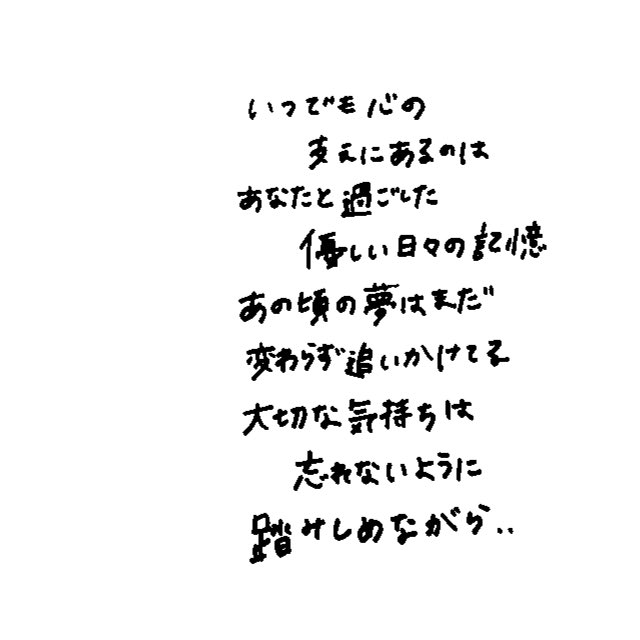 いつでも心の
支えにあるのは
あなたと過ごした
優しい日々の記憶
あの頃の夢はまだ
変わらず追いかけてる
大切な気持ちは
忘れないように
踏みしめながら..